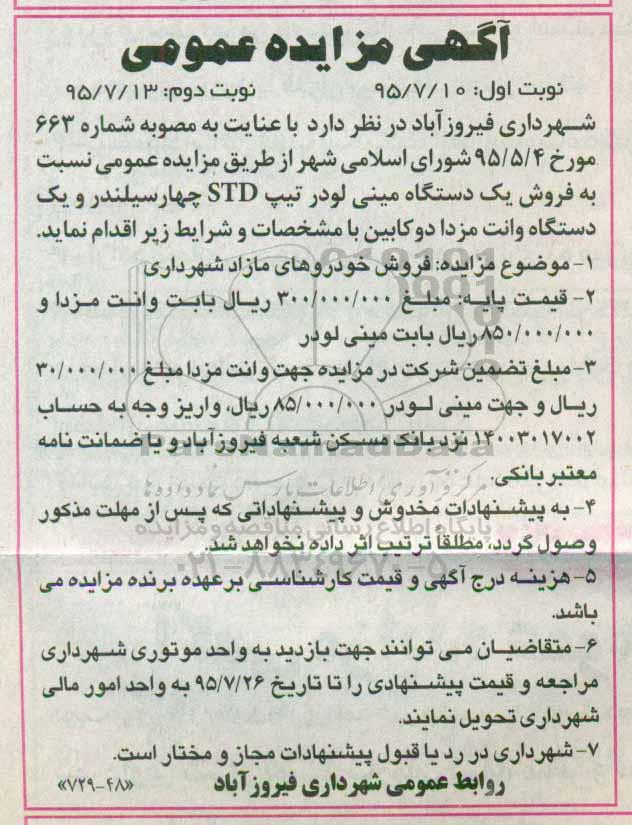 آگهی مزایده عمومی
نوبت اول: ۹۵/۷/۱۰ نوبت دوم: ۹۵/۷/۱۳
شهرداری فیروزآباد در نظر دارد با عنایت به مصوبه شماره ۶۶۳
مورخ ۹۵/۵/۴ شورای اسلامی شهر از طریق مزایده عمومی نسبت
به فروش یک دستگاه مینی لودر تیپ STD چهارسیلندر و یک
دستگاه وانت مزدا دوکابین با مشخصات و شرایط زیر اقدام نماید.
۱- موضوع مزایده: فروش خودروهای مازاد شهرداری
۲- قیمت پایه: مبلغ ۳۰۰/۰۰۰/۰۰۰ ریال بابت وانت مزدا و
۸۵۰/۰۰۰/۰۰۰ ریال بابت مینی لودر
۳- مبلغ تضمین شرکت در مزایده جهت وانت مزدا مبلغ ۳۰/۰۰۰/۰۰۰
ریال و جهت مینی لودر ۸۵/۰۰۰/۰۰۰ ریال، واریز وجه به حساب
۱۴۰۰۳۰۱۷۰۰۲ نزد بانک مسکن شعبه فیروزآباد و یا ضمانت نامه
معتبر بانکی.
۴- به پیشنهادات مخدوش و پیشنهاداتی که پس از مهلت مذکور
وصول گردد، مطلقاً ترتیب اثر داده نخواهد شد.
۵- هزینه درج آگهی و قیمت کارشناسی برعهده برنده مزایده می
باشد.
۶- متقاضیان می توانند جهت بازدید به واحد موتوری شهرداری
مراجعه و قیمت پیشنهادی را تا تاریخ ۹۵/۷/۲۶ به واحد امور مالی
شهرداری تحویل نمایند.
۷- شهرداری در رد یا قبول پیشنهادات مجاز و مختار است.
روابط عمومی شهرداری فیروزآباد «۷۲۹-۴۸»
ParsNamadData
مرکز فرآوری اطلاعات پارس نماد داده ها
پایگاه اطلاع رسانی مناقصه و مزایده
۰۲۱-۸۸۳۴۹۶۷۰-۵